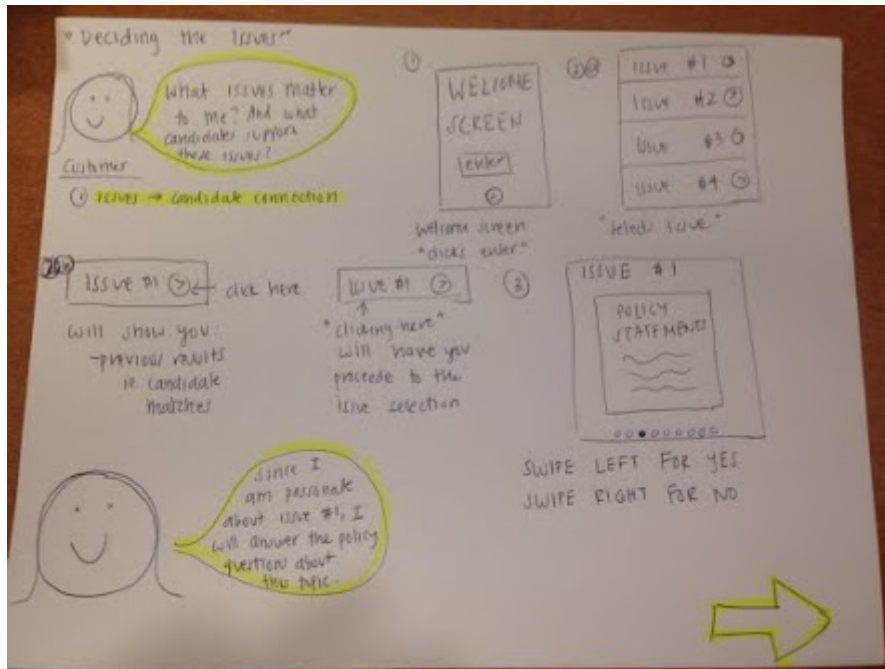 "Deciding the Issues"
What issues matter
to me? And what
candidates support
these issues?
Customer
① issues → candidate connection
①
WELCOME
SCREEN
enter
welcome screen
"clicks enter"
②
ISSUE #1
ISSUE #2
ISSUE #3
ISSUE #4
"selects issue"
ISSUE #1
click here
will show you:
-previous results
ie. candidate
matches
ISSUE #1
"clicking here"
will have you
proceede to the
issue selection
③
ISSUE #1
POLICY
STATEMENTS
SWIPE LEFT FOR YES
SWIPE RIGHT FOR NO
Since I
am passionate
about issue #1, I
will answer the policy
question about
this topic.